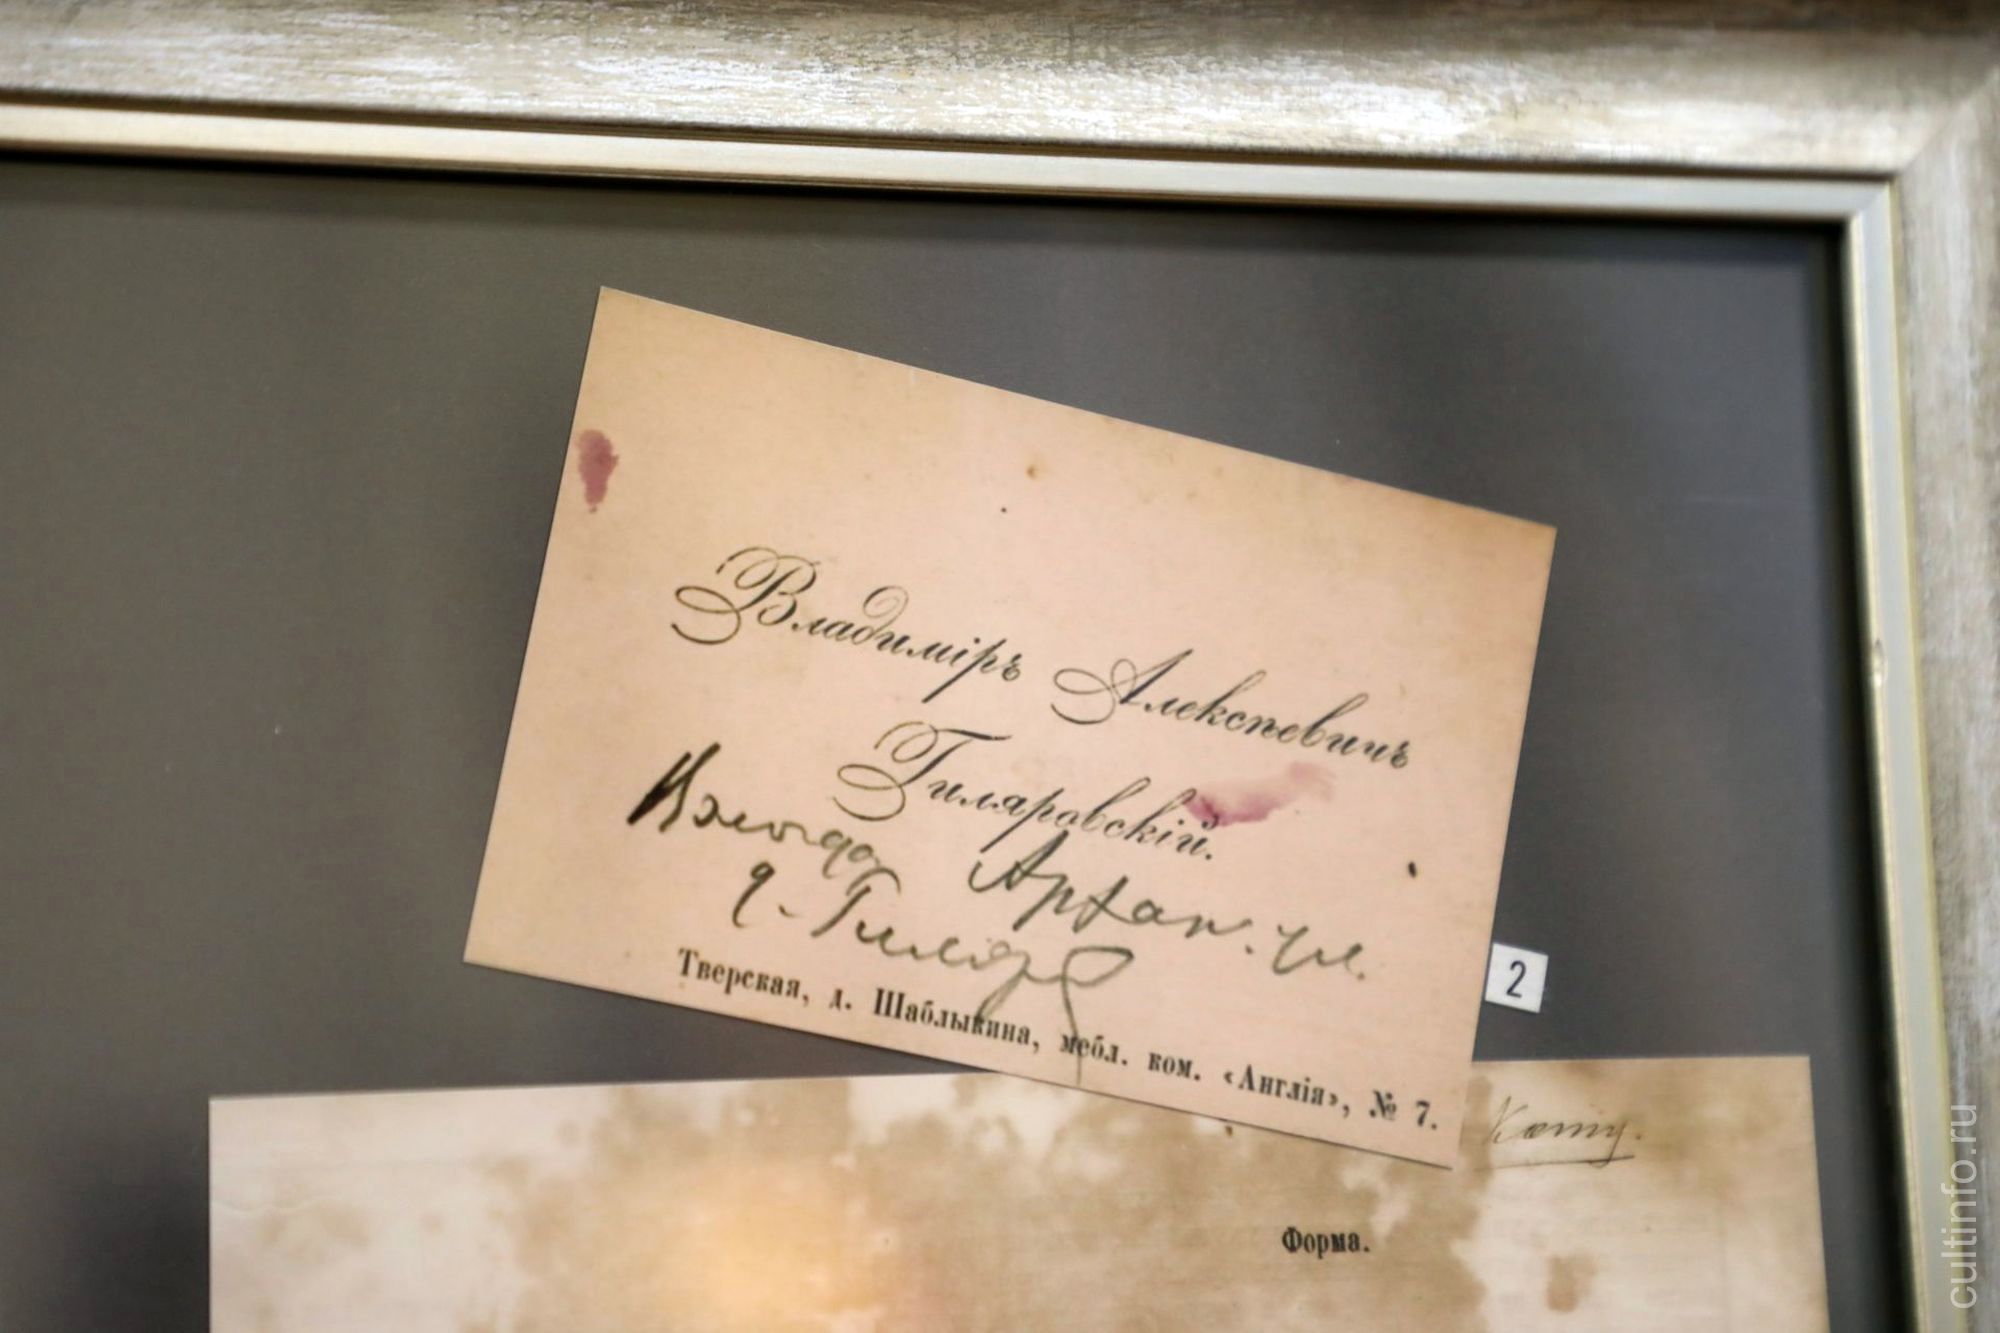 Владиміръ Алексѣевичъ
Гиляровскій.
Вологда Архан. ул.
д. Гиляр
Тверская, д. Шаблыкина, мебл. ком. «Англія», № 7.
2
Форма.
cultinfo.ru